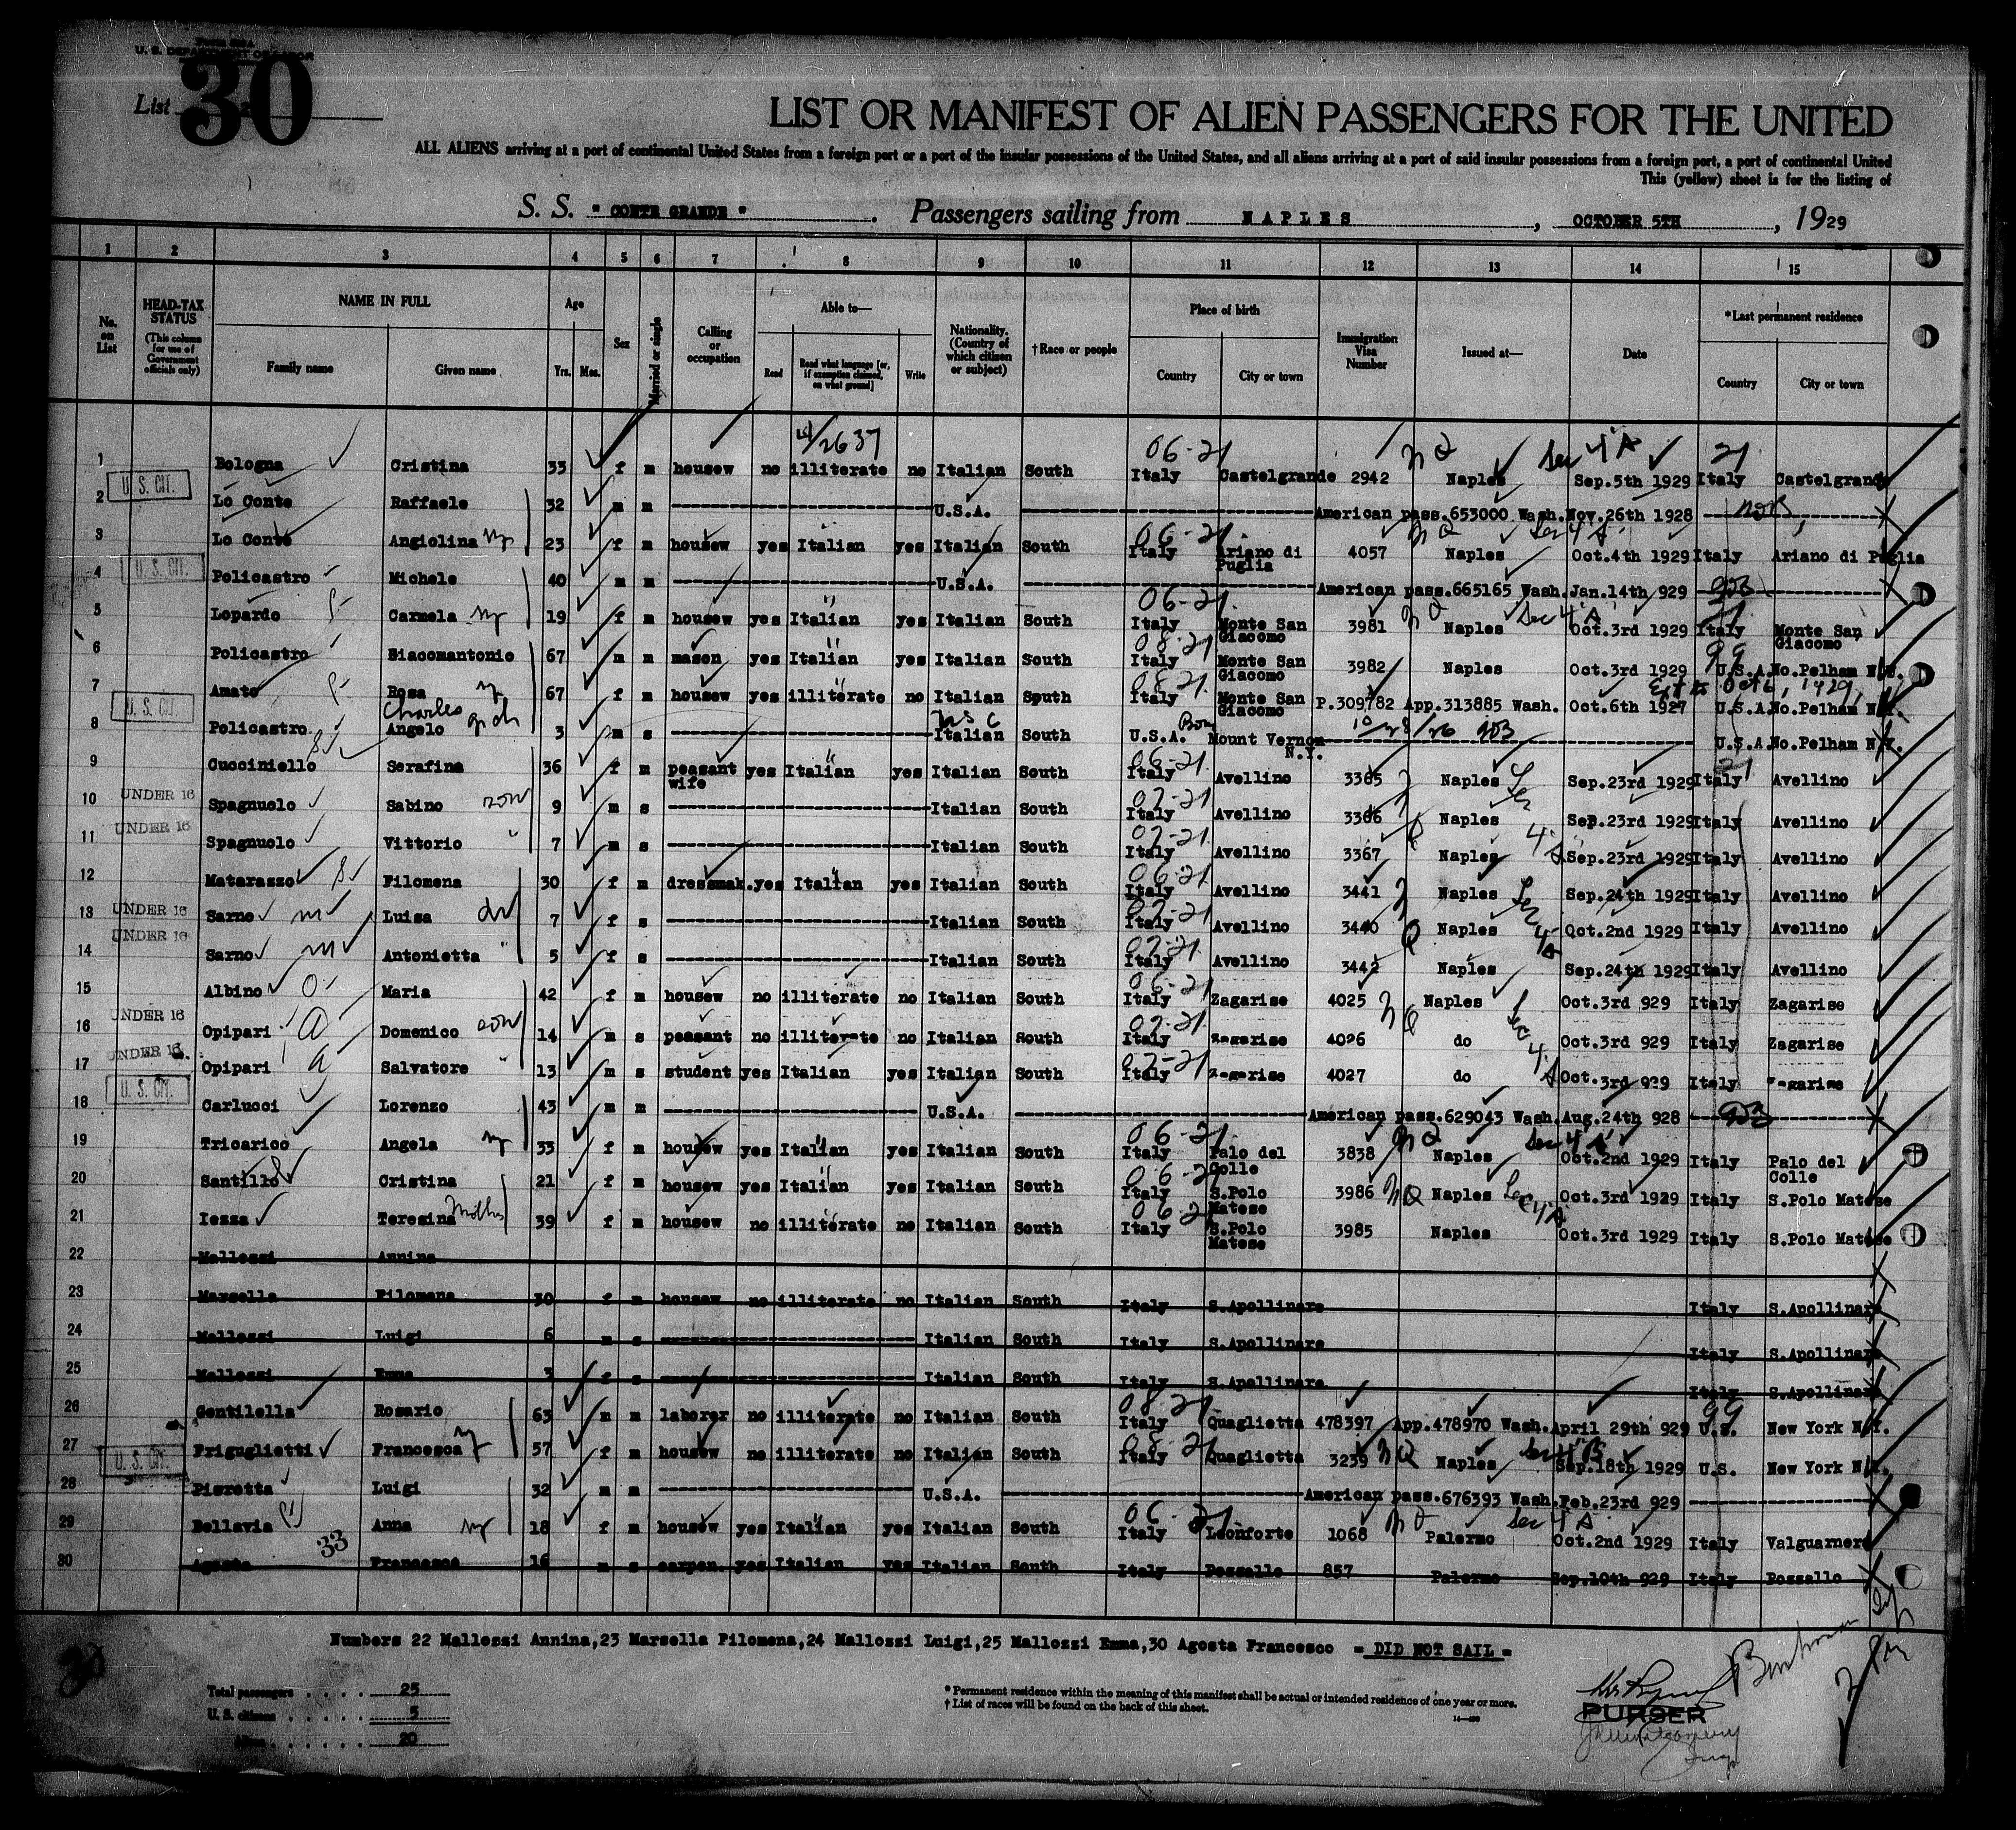 U. S. DEPARTMENT OF LABOR
List 30
LIST OR MANIFEST OF ALIEN PASSENGERS FOR THE UNITED
ALL ALIENS arriving at a port of continental United States from a foreign port or a port of the insular possessions of the United States, and all aliens arriving at a port of said insular possessions from a foreign port, a port of continental United
This (yellow) sheet is for the listing of
S. S. "CONTE GRANDE". Passengers sailing from NAPLES, OCTOBER 5TH, 1929
1 2 3 4 5 6 7 8 9 10 11 12 13 14 15
No. on List HEAD-TAX STATUS (This column for use of Government officials only) NAME IN FULL Family name Given name Age Yrs. Mos. Sex Married or single Calling or occupation Able to— Read Read what language [or, if exemption claimed, on what ground] Write Nationality. (Country of which citizen or subject) †Race or people Place of birth Country City or town Immigration Visa Number Issued at— Date *Last permanent residence Country City or town
1 Bologna Cristina 33 f m housew no illiterate no Italian South 06-21 Italy Castelgrande 2942 Naples Sec 4 A Sep.5th 1929 21 Italy Castelgrande
2 U. S. CIT. Lo Conte Raffaele 32 m m U.S.A. American pass.653000 Wash.Nov.26th 1928
3 Lo Conte Angiolina 23 f m housew yes Italian yes Italian South 06-21 Italy Ariano di Puglia 4057 Naples Sec 4 A Oct.4th 1929 Italy Ariano di Puglia
4 U. S. CIT. Policastro Michele 40 m m U.S.A. American pass.665165 Wash.Jan.14th 929
5 Lopardo Carmela 19 f m housew yes Italian yes Italian South 06-21 Italy Monte San Giacomo 3981 Naples Sec 4 A Oct.3rd 1929 21 Italy Monte San Giacomo
6 Policastro Giacomantonio 67 m m mason yes Italian yes Italian South 08-21 Italy Monte San Giacomo 3982 Naples Oct.3rd 1929 99 U.S.A. No.Pelham N.Y.
7 Amato Rosa 67 f m housew yes illiterate no Italian South 08-21 Italy Monte San Giacomo P.309782 App.313885 Wash. Oct.6th 1927 U.S.A. No.Pelham N.Y.
8 U. S. CIT. Policastro Charles Angelo 3 m s US C Italian South U.S.A. Born Mount Vernon N.Y. 10/28/26 U.S.A. No.Pelham N.Y.
9 Cucciniello Serafina 36 f m peasant wife yes Italian yes Italian South 06-21 Italy Avellino 3365 Naples Sep.23rd 1929 21 Italy Avellino
10 UNDER 16 Spagnuolo Sabino son 9 m s Italian South 07-21 Italy Avellino 3366 Naples Sep.23rd 1929 Italy Avellino
11 UNDER 16 Spagnuolo Vittorio " 7 m s Italian South 07-21 Italy Avellino 3367 Naples Sep.23rd 1929 Italy Avellino
12 Matarazzo Filomena 30 f m dressmak. yes Italian yes Italian South 06-21 Italy Avellino 3441 Naples Sep.24th 1929 Italy Avellino
13 UNDER 16 Sarno Luisa 7 f s Italian South 07-21 Italy Avellino 3440 Naples Oct.2nd 1929 Italy Avellino
14 UNDER 16 Sarno Antonietta " 5 f s Italian South 07-21 Italy Avellino 3442 Naples Sep.24th 1929 Italy Avellino
15 Albino Maria 42 f m housew no illiterate no Italian South 06-21 Italy Zagarise 4025 Naples Oct.3rd 929 Italy Zagarise
16 UNDER 16 Opipari Domenico son 14 m s peasant no illiterate no Italian South 07-21 Italy Zagarise 4026 do Oct.3rd 929 Italy Zagarise
17 UNDER 16 Opipari Salvatore " 13 m s student yes Italian yes Italian South 07-21 Italy Zagarise 4027 do Oct.3rd 929 Italy Zagarise
18 U. S. CIT. Carlucci Lorenzo 43 m m U.S.A. American pass.629043 Wash.Aug.24th 928
19 Tricarico Angela 33 f m housew yes Italian yes Italian South 06-21 Italy Palo del Colle 3838 Naples Sec 4 A Oct.2nd 1929 Italy Palo del Colle
20 Santillo Cristina 21 f m housew yes Italian yes Italian South 06-21 Italy S.Polo Matese 3986 Naples Oct.3rd 1929 Italy S.Polo Matese
21 Iezza Teresina Mother 39 f m housew no illiterate no Italian South 06-21 Italy S.Polo Matese 3985 Naples Oct.3rd 1929 Italy S.Polo Matese
22 Mallozzi Annina
23 Marsella Filomena 30 f m housew no illiterate no Italian South Italy S.Apollinare Italy S.Apollinare
24 Mallozzi Luigi 6 m s Italian South Italy S.Apollinare Italy S.Apollinare
25 Mallozzi Emma 3 f s Italian South Italy S.Apollinare Italy S.Apollinare
26 Gentilella Rosario 63 m m laborer no illiterate no Italian South 08-21 Italy Quaglietta 478397 App.478970 Wash.April 29th 929 99 U.S. New York N.Y.
27 Friguglietti Francesca 57 f m housew no illiterate no Italian South 08-21 Italy Quaglietta 3239 Naples Sec 4 B Sep.18th 1929 U.S. New York N.Y.
28 U. S. CIT. Pieretta Luigi 32 m m U.S.A. American pass.676393 Wash.Feb.23rd 929
29 Bellavia Anna 18 f m housew yes Italian yes Italian South 06-21 Italy Leonforte 1068 Palermo Sec 4 A Oct.2nd 1929 Italy Valguarnera
30 Agosta Francesco 16 m s carpen. yes Italian yes Italian South Italy Pozzallo 857 Palermo Sep.10th 929 Italy Pozzallo
33
Numbers 22 Mallozzi Annina,23 Marsella Filomena,24 Mallozzi Luigi,25 Mallozzi Emma,30 Agosta Francesco = DID NOT SAIL =
Total passengers . . . . 25
U. S. citizens . . . . . 5
Aliens . . . . . . 20
* Permanent residence within the meaning of this manifest shall be actual or intended residence of one year or more.
† List of races will be found on the back of this sheet.
PURSER